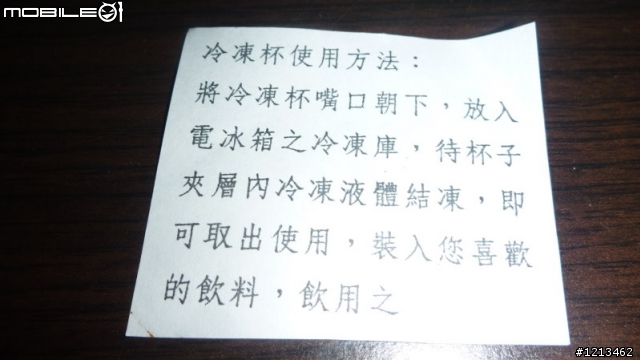 MOBILE01
冷凍杯使用方法：
將冷凍杯嘴口朝下，放入
電冰箱之冷凍庫，待杯子
夾層內冷凍液體結凍，即
可取出使用，裝入您喜歡
的飲料，飲用之
#1213462